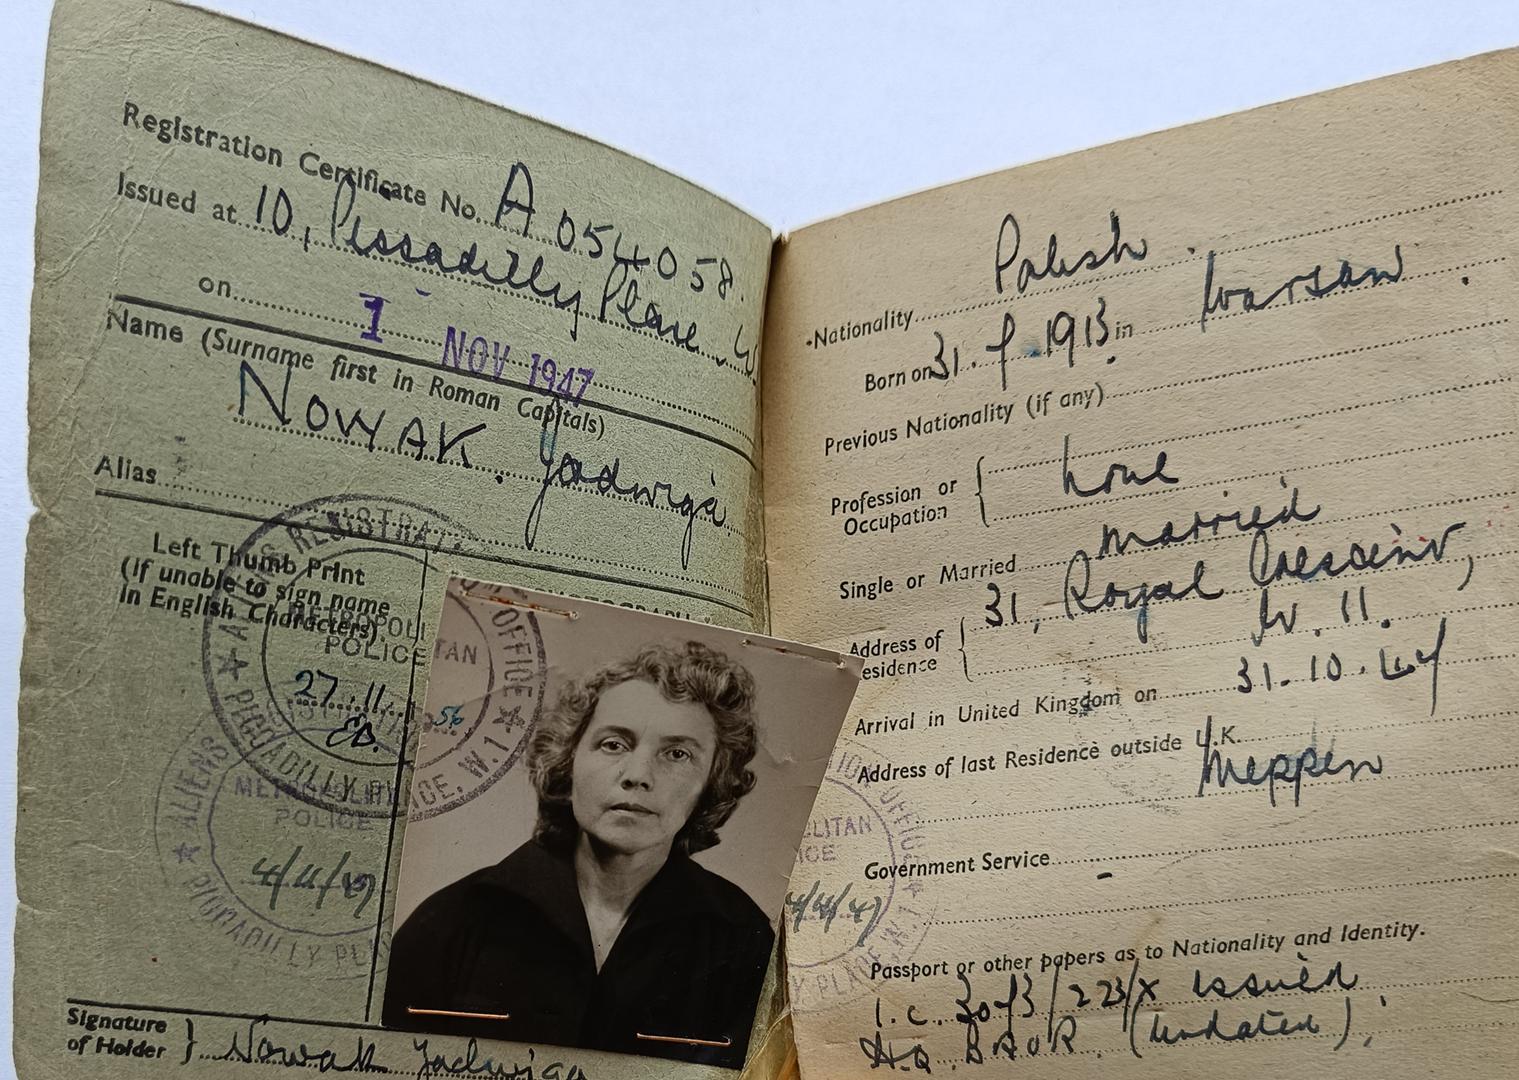 Registration Certificate No. A 054058.
Issued at 10, Pissadilly Place W
on 1 NOV 1947
Name (Surname first in Roman Capitals)
NOWAK. Jadwiga
Alias
Left Thumb Print
(if unable to sign name
in English Characters).
ALIENS REGISTRATION OFFICE
METROPOLITAN
POLICE
27.11.56
PICCADILLY PLACE, W.1
ALIENS
METROPOLITAN
POLICE
4/11/47
PICCADILLY PLACE, W.1
Signature
of Holder } Nowak Jadwiga
Nationality Polish.
Born on 31.7.1913. in Warsaw.
Previous Nationality (if any)
Profession or
Occupation { none
Single or Married married
Address of
Residence { 31, Royal Crescent,
W. 11.
Arrival in United Kingdom on 31.10.47
Address of last Residence outside U.K.
Meppen
Government Service -
Passport or other papers as to Nationality and Identity.
I.C. 3073/223/X issued
H.Q. BAOR. (undated).